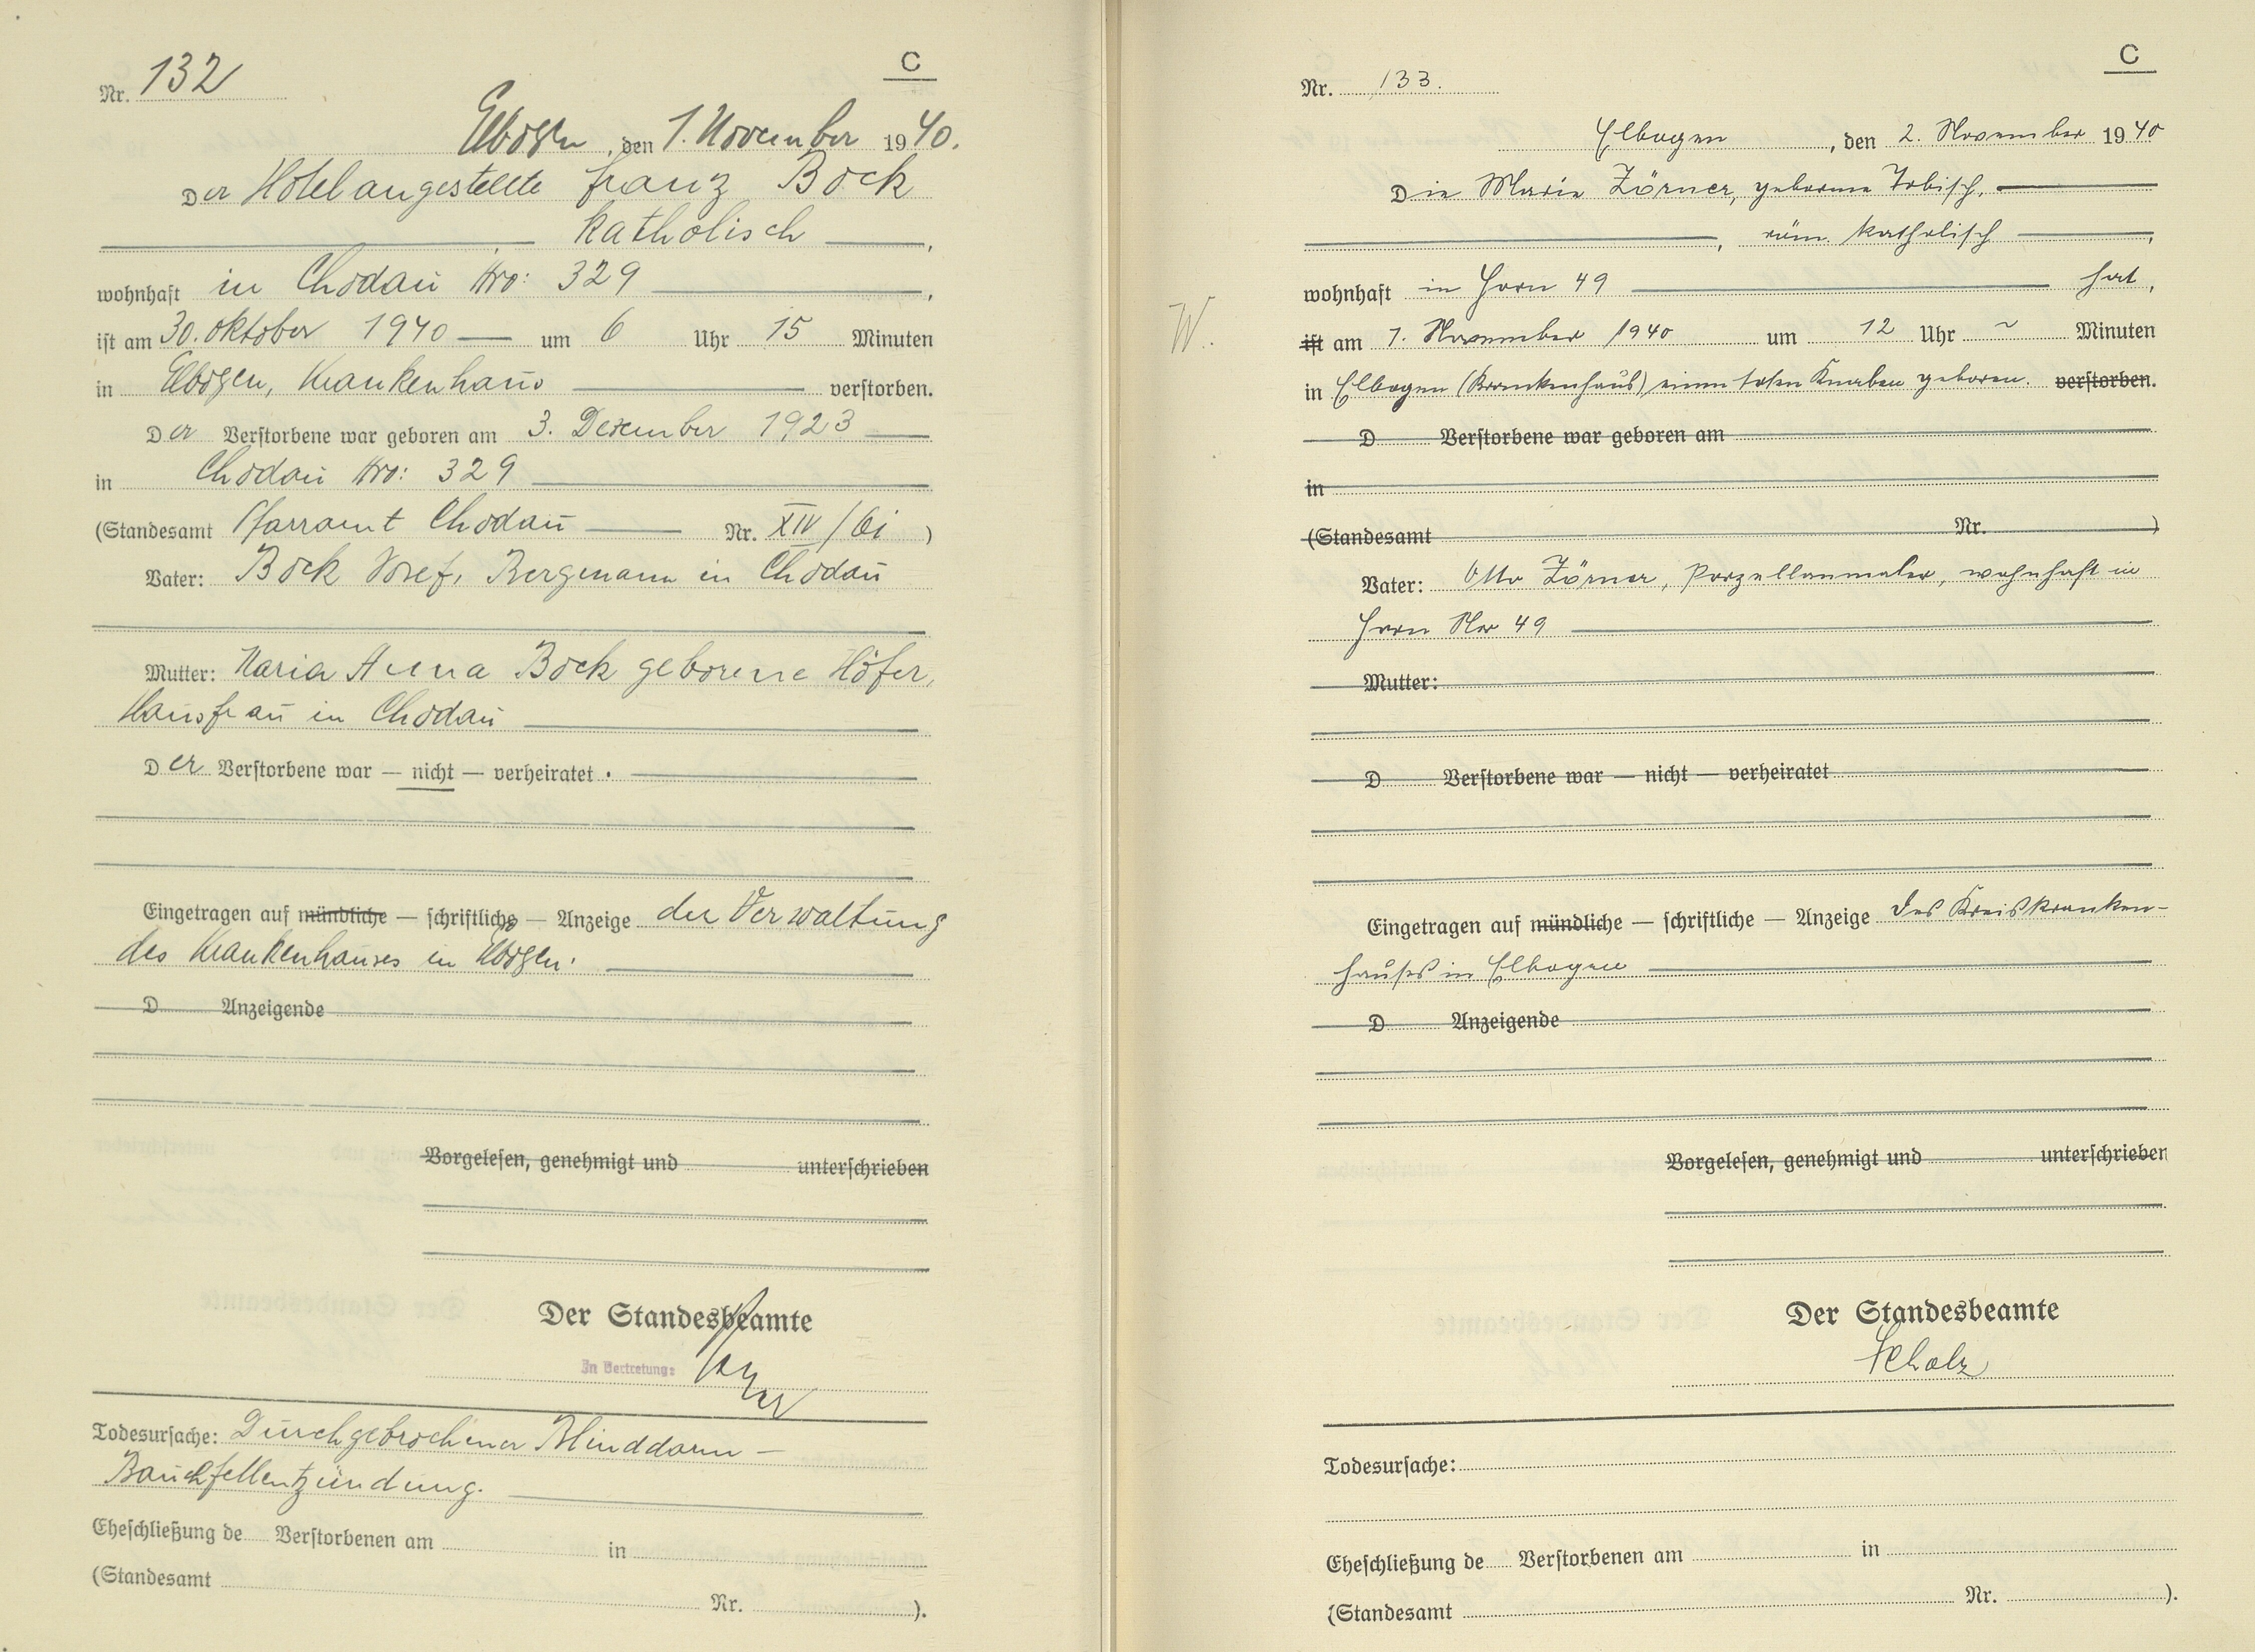 C
Nr. 132
Elbogen, den 1. November 1940.
Der Hotelangestellte Franz Bock
katholisch,
wohnhaft in Chodau Nro: 329,
ist am 30. Oktober 1940 um 6 Uhr 15 Minuten
in Elbogen, Krankenhaus verstorben.
Der Verstorbene war geboren am 3. Dezember 1923
in Chodau Nro: 329
(Standesamt Pfarramt Chodau Nr. XIV/61)
Vater: Bock Josef, Bergmann in Chodau
Mutter: Maria Anna Bock geborene Höfer,
Hausfrau in Chodau
Der Verstorbene war — nicht — verheiratet.
Eingetragen auf mündliche — schriftliche — Anzeige der Verwaltung
des Krankenhauses in Elbogen.
D Anzeigende
Vorgelesen, genehmigt und unterschrieben
Der Standesbeamte
In Vertretung:
Todesursache: Durchgebrochener Blinddarm –
Bauchfellentzündung.
Eheschließung de Verstorbenen am in
(Standesamt Nr. ).
C
Nr. 133.
Elbogen, den 2. November 1940
Die Marie Zörner, geborene Tobisch,
röm. katholisch,
wohnhaft in Horn 49 hat,
W.
ist am 1. November 1940 um 12 Uhr ~ Minuten
in Elbogen (Krankenhaus) einen toten Knaben geboren. verstorben.
D Verstorbene war geboren am
in
(Standesamt Nr. )
Vater: Otto Zörner, Porzellanmaler, wohnhaft in
Horn Nro 49
Mutter:
D Verstorbene war — nicht — verheiratet
Eingetragen auf mündliche — schriftliche — Anzeige des Kreiskranken-
hauses in Elbogen
D Anzeigende
Vorgelesen, genehmigt und unterschrieben
Der Standesbeamte
Scholz
Todesursache:
Eheschließung de Verstorbenen am in
(Standesamt Nr. ).